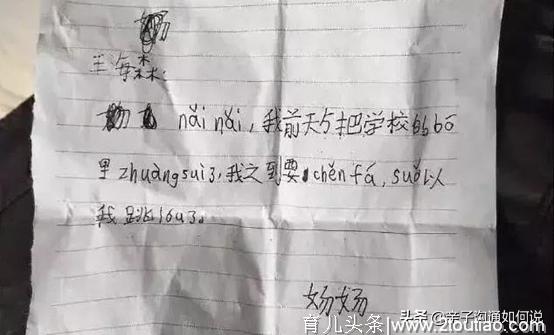 海森:
nǎi nǎi,我前天与把学校的bō
里zhuàng suì了,我之到要chěn fá,suǒ以
我跳lóu了。
头条 @亲子沟通如何说
育儿头条 www.21outiao.com